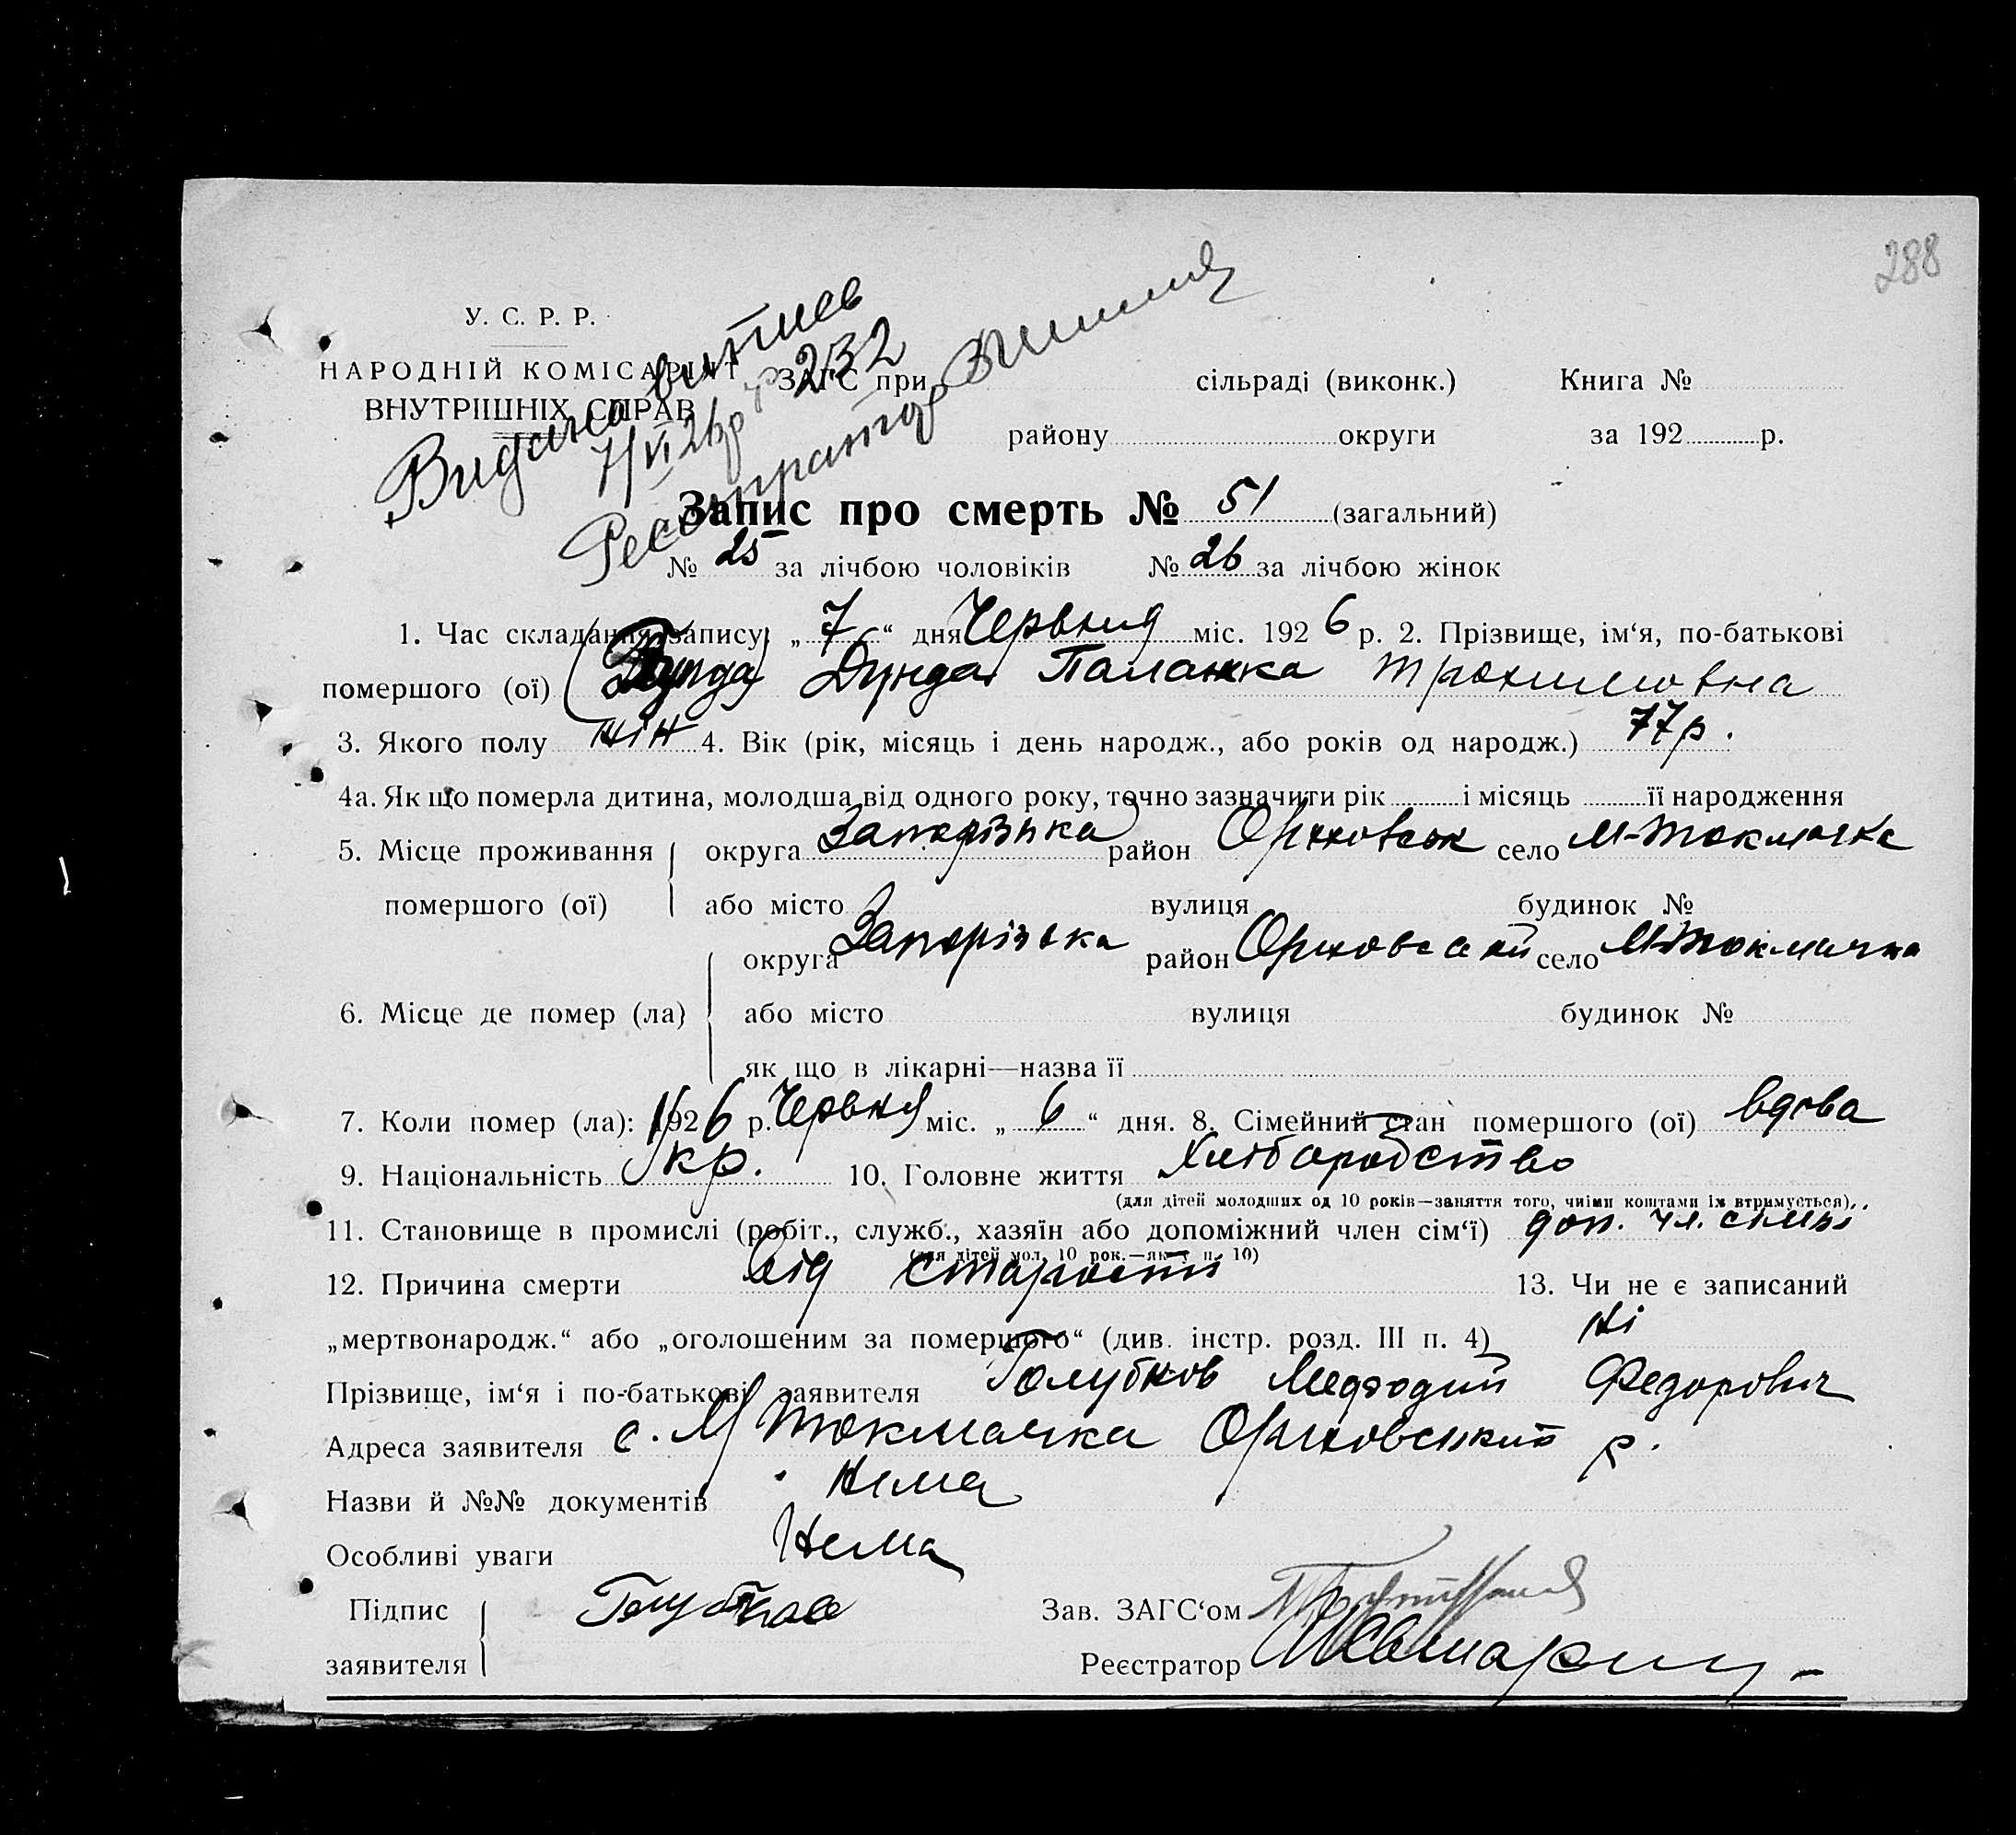 288
Видано витись
7/VI 26р № 232
Реєстратор
У. С. Р. Р.
НАРОДНІЙ КОМІСАРІЯТ
ВНУТРІШНІХ СПРАВ
ЗАГС при сільраді (виконк.) Книга №
району округи за 192 р.
Запис про смерть № 51 (загальний)
№ 25 за лічбою чоловіків № 26 за лічбою жінок
1. Час складання запису: „ 7 “ дня Червня міс. 1926 р. 2. Прізвище, ім‘я, по-батькові
помершого (ої) Дунда Паланка Трохимовна
3. Якого полу жін 4. Вік (рік, місяць і день народж., або років од народж.) 77 р.
4а. Як що померла дитина, молодша від одного року, точно зазначити рік і місяць її народження
5. Місце проживання округа Запорізька район Оріховськ село М-Токмачка
помершого (ої) або місто вулиця будинок №
округа Запорізька район Оріховський село М-Токмачка
6. Місце де помер (ла) або місто вулиця будинок №
як що в лікарні—назва її
7. Коли помер (ла): 1926 р. Червня міс. „ 6 “ дня. 8. Сімейний стан помершого (ої) вдова
9. Національність Укр. 10. Головне життя Хліборобство
(для дітей молодших од 10 років—заняття того, чиїми коштами їх втримується).
11. Становище в промислі (робіт., служб., хазяїн або допоміжний член сім‘ї) доп. чл. сімьі
(для дітей мол. 10 рок.—як у п. 10)
12. Причина смерти від старости 13. Чи не є записаний
„мертвонародж.“ або „оголошеним за помершого“ (див. інстр. розд. III п. 4) Ні
Прізвище, ім‘я і по-батькові заявителя Голубков Мефодий Федорович
Адреса заявителя с. М Токмачка Оріховський р.
Назви й №№ документів Нема
Особливі уваги Нема
Підпис Голубков Зав. ЗАГС‘ом
заявителя Реєстратор